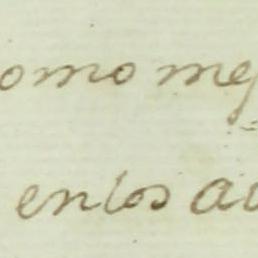 omo me
en los a